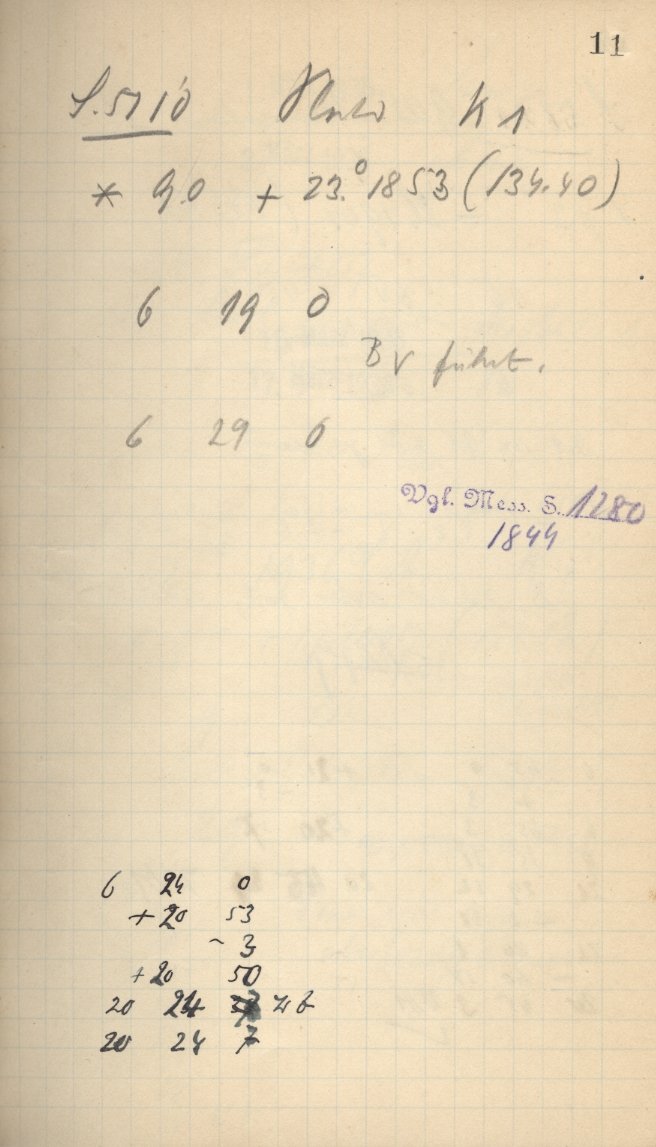 11
S. 5710 Pluto K 1
* 9.0 + 23.° 1853 (134.40)
6 19 0
BV führt.
6 29 0
Vgl. Mess. S. 1280
1844
6 24 0
+ 20 53
- 3
+ 20 50
20 24
20 24 7